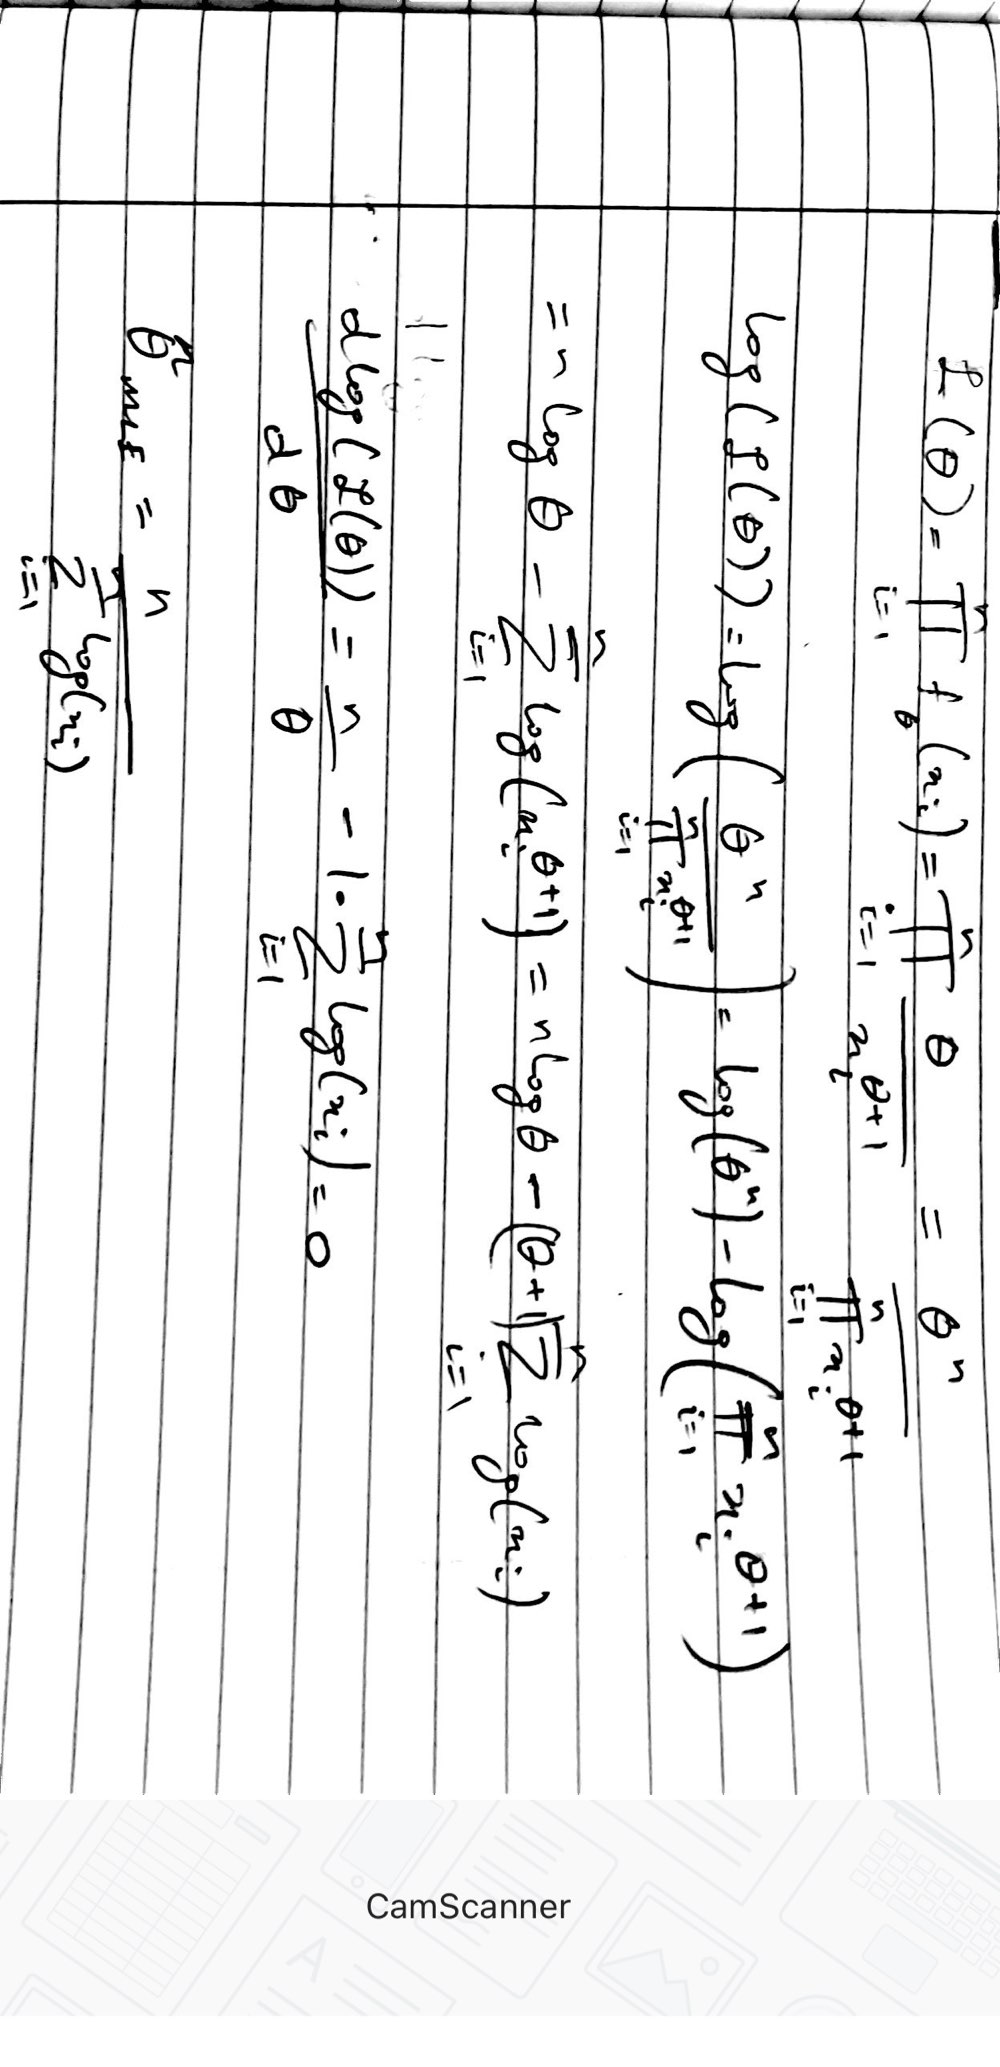 ℒ(θ) = ∏_{i=1}^{n} f_θ(x_i) = ∏_{i=1}^{n} θ / x_i^{θ+1} = θ^n / ∏_{i=1}^{n} x_i^{θ+1}
log(ℒ(θ)) = log(θ^n / ∏_{i=1}^{n} x_i^{θ+1}) = log(θ^n) - log(∏_{i=1}^{n} x_i^{θ+1})
= n log θ - ∑_{i=1}^{n} log(x_i^{θ+1}) = n log θ - (θ+1) ∑_{i=1}^{n} log(x_i)
d log(ℒ(θ)) / dθ = n/θ - 1·∑_{i=1}^{n} log(x_i) = 0
θ̂_{MLE} = n / ∑_{i=1}^{n} log(x_i)
CamScanner